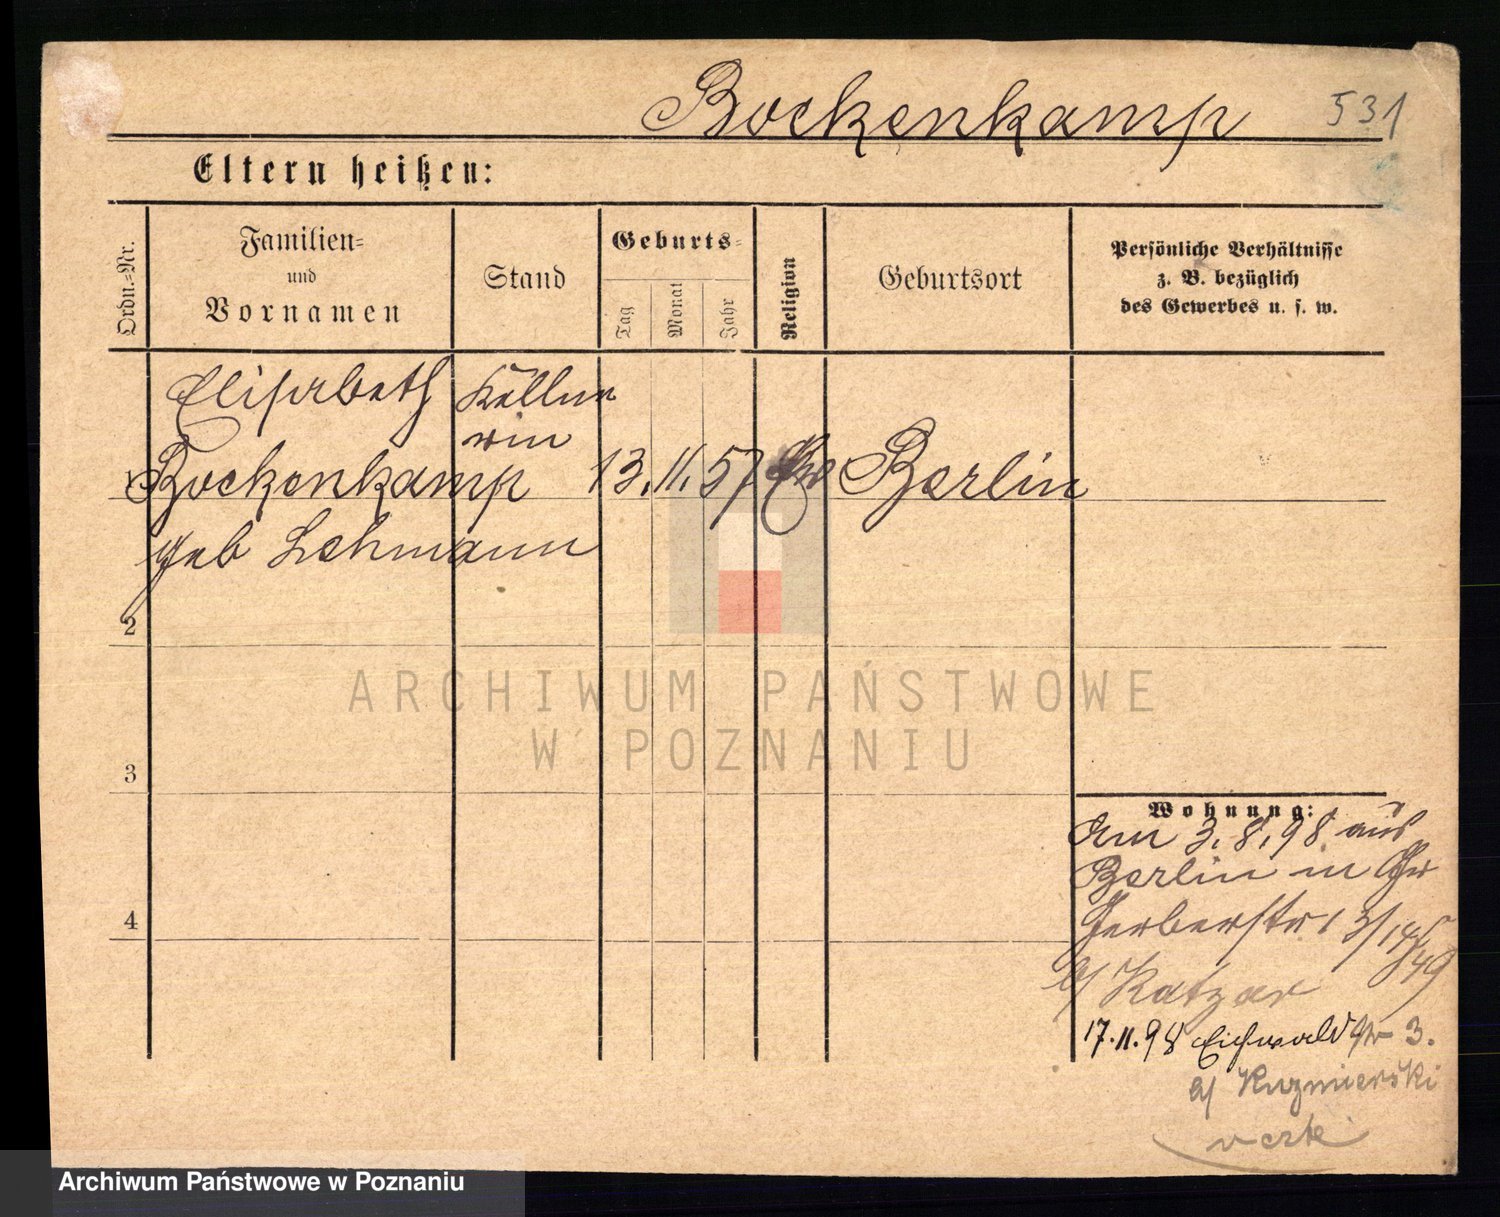 Bockenkamp 531
Eltern heißen:
Ordn.-Nr.
Familien-
und
Vornamen
Stand
Geburts-
Tag
Monat
Jahr
Religion
Geburtsort
Persönliche Verhältnisse
z. B. bezüglich
des Gewerbes u. s. w.
Elisabeth Kellne
rin
1 Bockenkamp 13. 11. 57 Berlin
geb Lehmann
2
3
4
Wohnung:
Am 3. 8. 98 aus
Berlin in
Gerberstr 13/14
b/ Katzar
17. 11. 98 Eichwald 3.
b/ Kuzmierski
ARCHIWUM PAŃSTWOWE
W POZNANIU
Archiwum Państwowe w Poznaniu